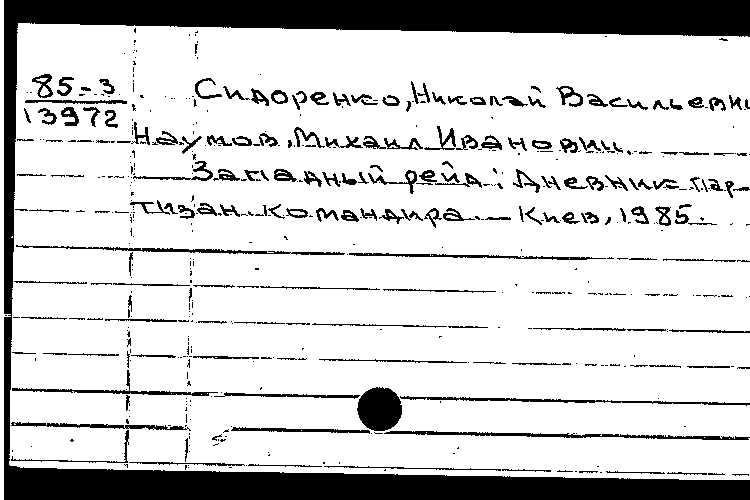 85-3
13972
Сидоренко, Николай Васильевич
Наумов, Михаил Иванович.
Западный рейд: Дневник пар-
тизан. командира. — Киев, 1985.